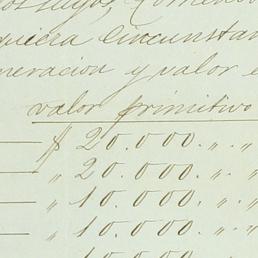 quiera Circunstan
neracion y valor e
valor primitivo
$ 20.000. „ „
„ 20.000. „ „
„ 10.000. „ „
„ 10.000. „ „